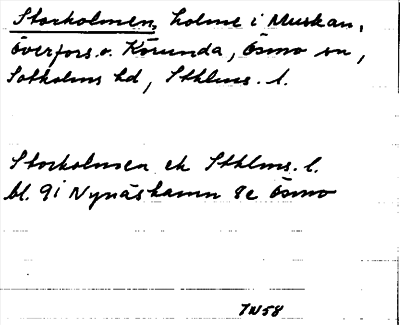 Storholmen, holme i Muskan,
Överfors o. Körunda, Ösmo sn,
Sotholms hd, Sthlms. l.
Storholmen ek Sthlms. l.
bl. 9i Nynäshamn 8e Ösmo
IN58